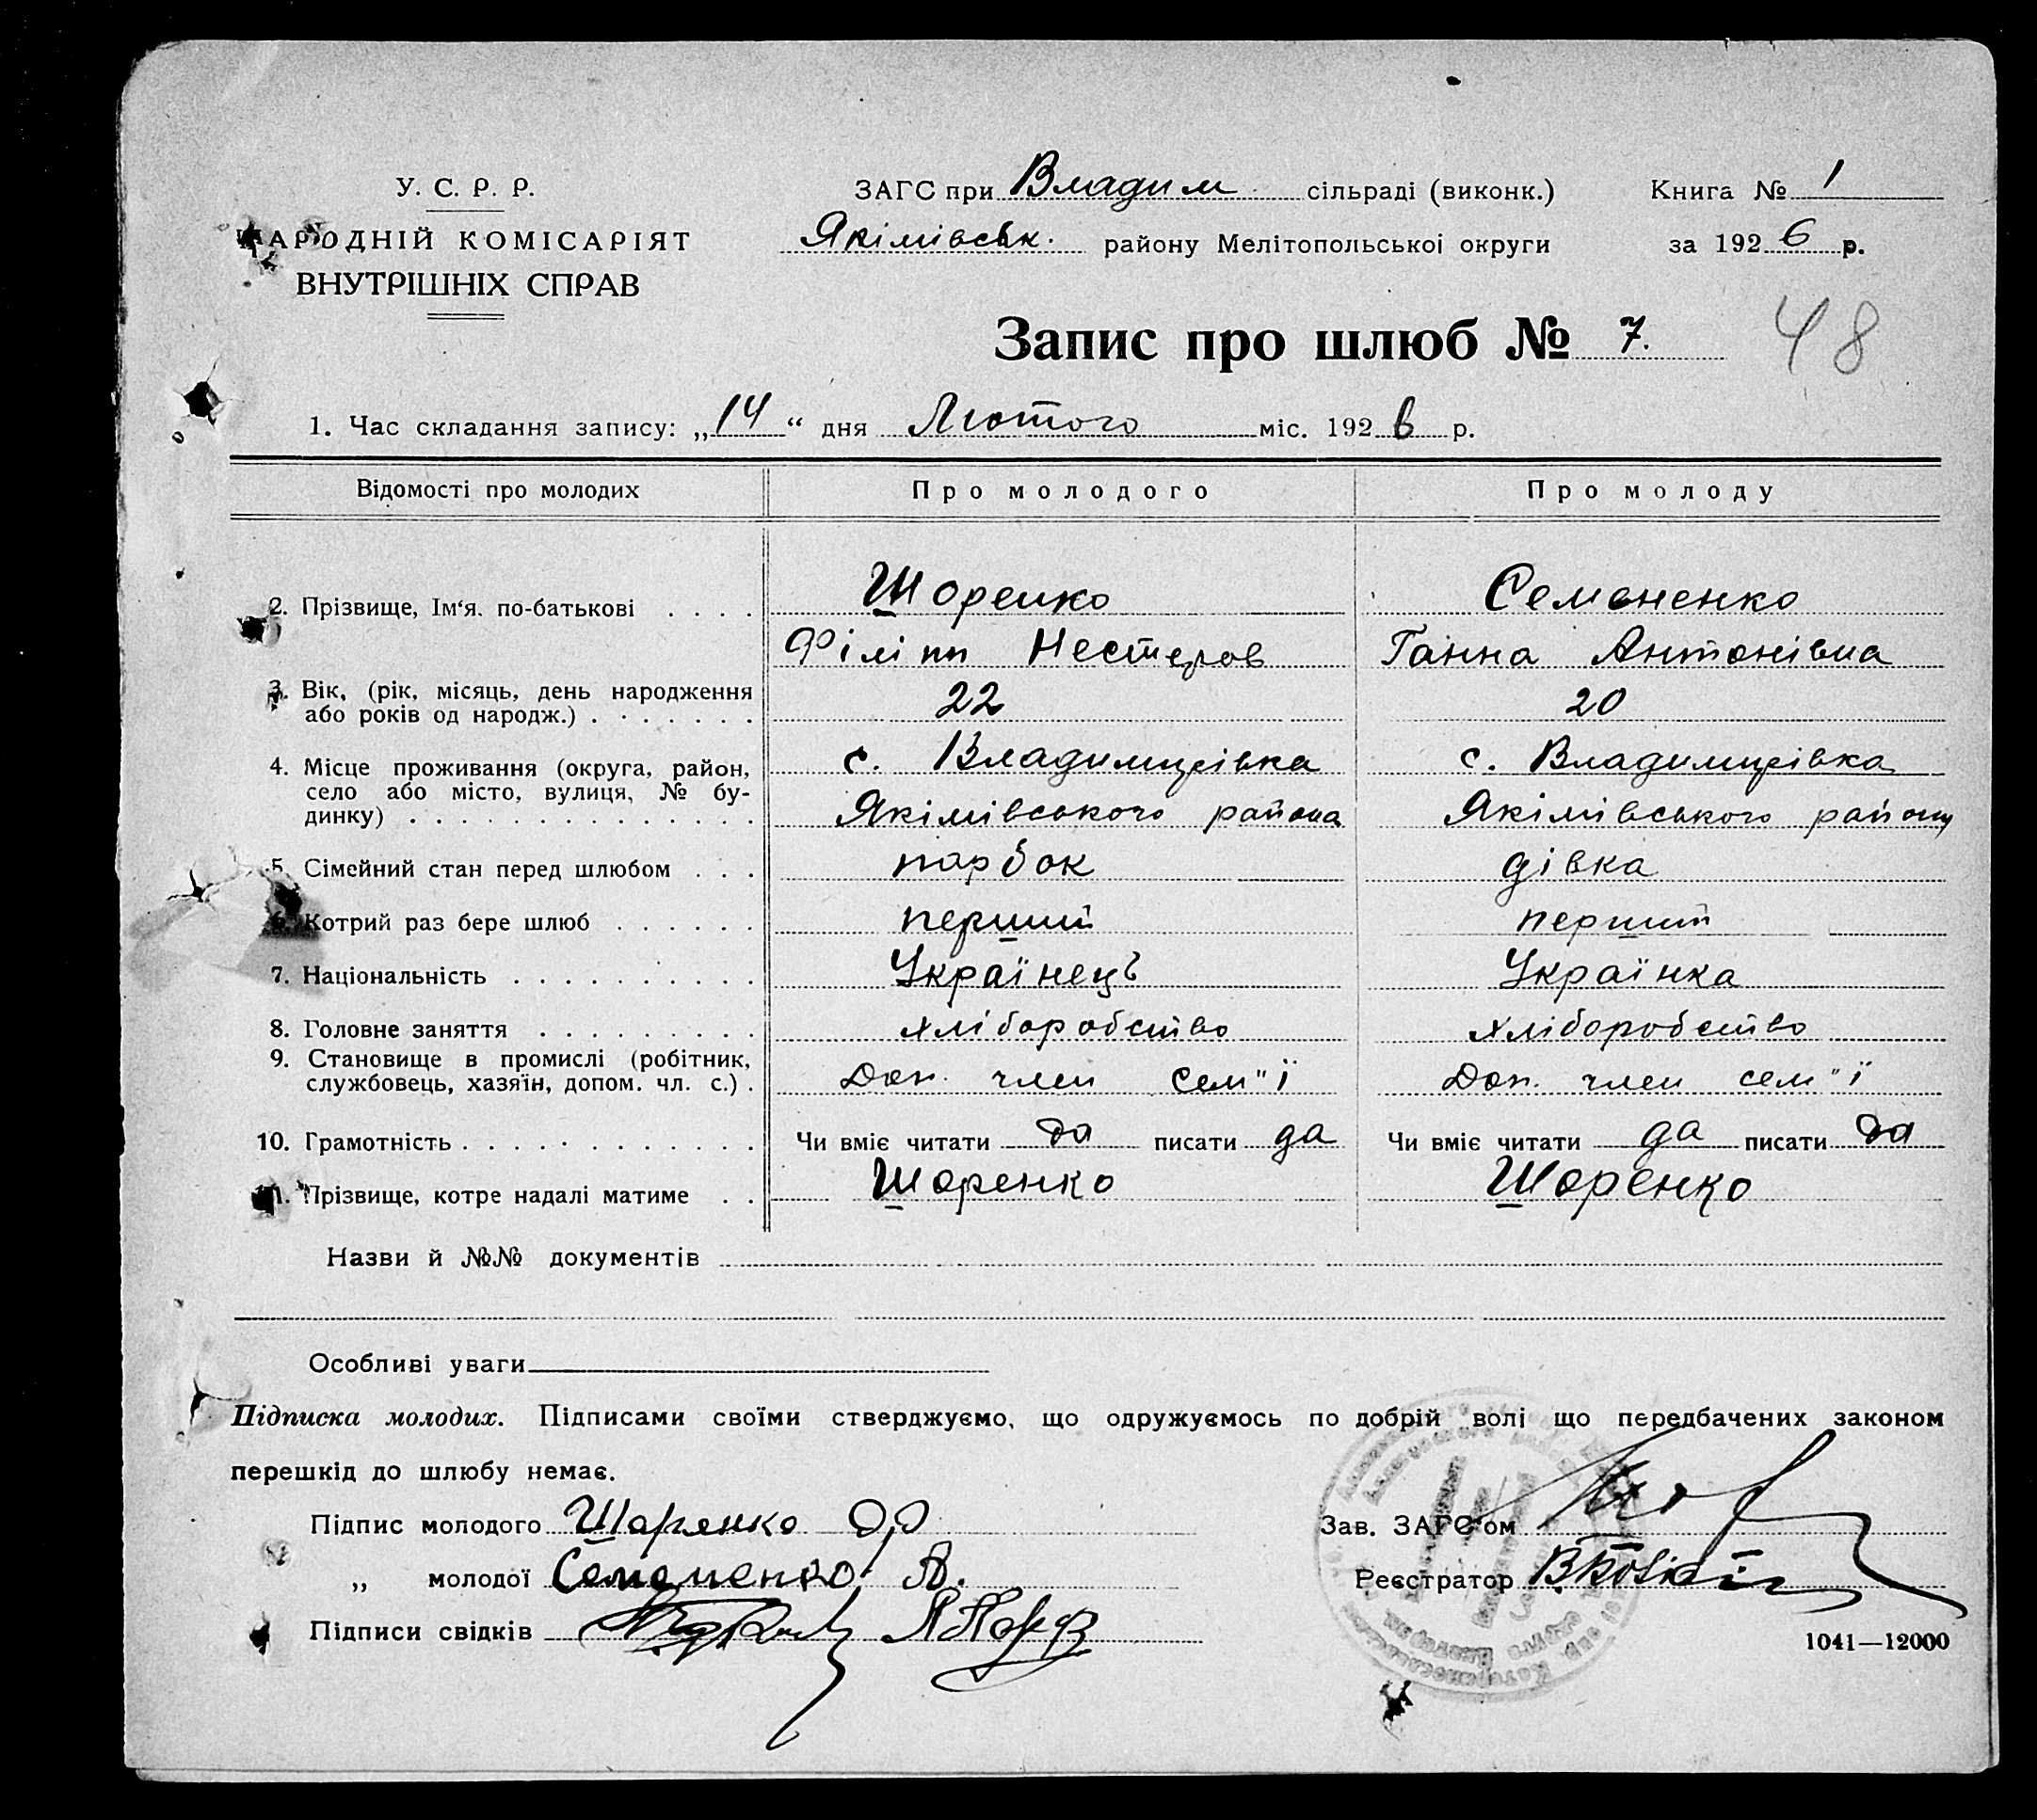 У. С. Р. Р.
НАРОДНІЙ КОМІСАРІЯТ
ВНУТРІШНІХ СПРАВ
ЗАГС при Владим сільраді (виконк.) Книга № 1
Якімівськ. району Мелітопольської округи за 1926 р.
Запис про шлюб № 7. 48
1. Час складання запису: „14“ дня Лютого міс. 1926 р.
Відомості про молодих Про молодого Про молоду
2. Прізвище, Ім'я. по-батькові . . . . Шоренко Семененко
Філіпп Нестеров Ганна Антонівна
3. Вік, (рік, місяць, день народження
або років од народж.) . . . . . . . 22 20
4. Місце проживання (округа, район, с. Владимирівка с. Владимирівка
село або місто, вулиця, № бу-
динку) . . . . . . . . . . . . . . Якімівського района Якімівського району
5. Сімейний стан перед шлюбом . . . парбок дівка
6. Котрий раз бере шлюб . . . . . . перший перший
7. Національність . . . . . . . . . . Українець Українка
8. Головне заняття . . . . . . . . . хліборобство хліборобство
9. Становище в промислі (робітник,
службовець, хазяїн, допом. чл. с.) . Доп. член сем"ї Доп. член сем"ї
10. Грамотність . . . . . . . . . . . . Чи вміє читати да писати да Чи вміє читати да писати да
11. Прізвище, котре надалі матиме . . Шоренко Шоренко
Назви й №№ документів
Особливі уваги
Підписка молодих. Підписами своїми стверджуємо, що одружуємось по добрій волі що передбачених законом
перешкід до шлюбу немає.
Підпис молодого Шоренко Зав. ЗАГС'ом
„ молодої Семененко А. Реєстратор
Підписи свідків
1041—12000